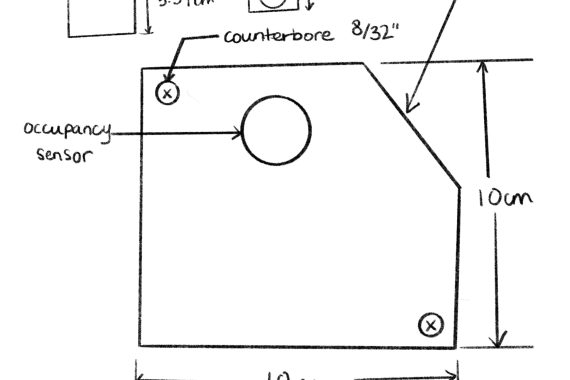 counterbore 8/32"
x
occupancy
sensor
10cm
x